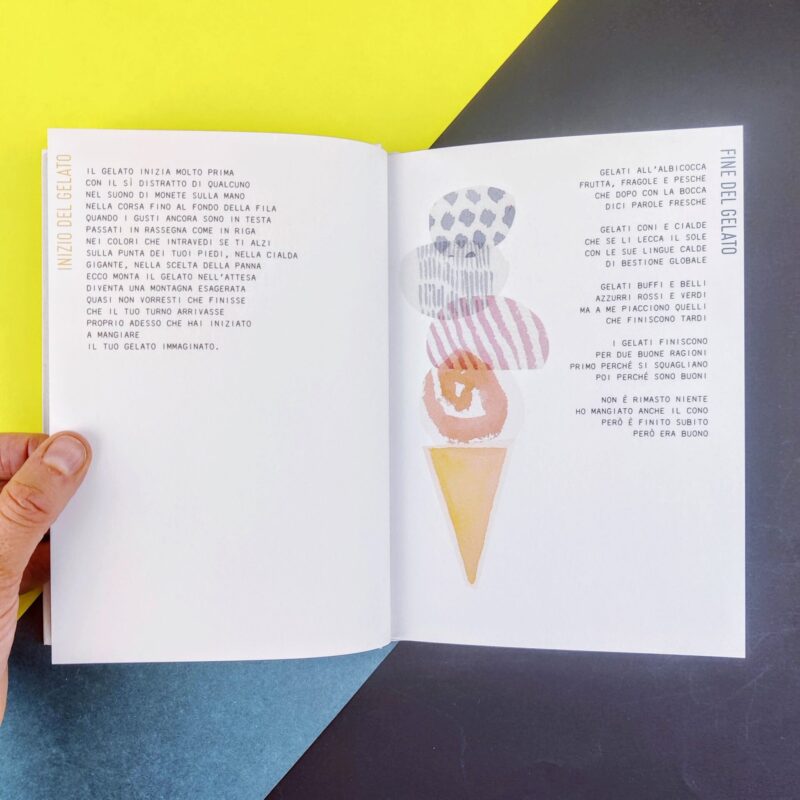 INIZIO DEL GELATO
IL GELATO INIZIA MOLTO PRIMA
CON IL SÌ DISTRATTO DI QUALCUNO
NEL SUONO DI MONETE SULLA MANO
NELLA CORSA FINO AL FONDO DELLA FILA
QUANDO I GUSTI ANCORA SONO IN TESTA
PASSATI IN RASSEGNA COME IN RIGA
NEI COLORI CHE INTRAVEDI SE TI ALZI
SULLA PUNTA DEI TUOI PIEDI, NELLA CIALDA
GIGANTE, NELLA SCELTA DELLA PANNA
ECCO MONTA IL GELATO NELL'ATTESA
DIVENTA UNA MONTAGNA ESAGERATA
QUASI NON VORRESTI CHE FINISSE
CHE IL TUO TURNO ARRIVASSE
PROPRIO ADESSO CHE HAI INIZIATO
A MANGIARE
IL TUO GELATO IMMAGINATO.
FINE DEL GELATO
GELATI ALL'ALBICOCCA
FRUTTA, FRAGOLE E PESCHE
CHE DOPO CON LA BOCCA
DICI PAROLE FRESCHE
GELATI CONI E CIALDE
CHE SE LI LECCA IL SOLE
CON LE SUE LINGUE CALDE
DI BESTIONE GLOBALE
GELATI BUFFI E BELLI
AZZURRI ROSSI E VERDI
MA A ME PIACCIONO QUELLI
CHE FINISCONO TARDI
I GELATI FINISCONO
PER DUE BUONE RAGIONI
PRIMO PERCHÉ SI SQUAGLIANO
POI PERCHÉ SONO BUONI
NON È RIMASTO NIENTE
HO MANGIATO ANCHE IL CONO
PERÒ È FINITO SUBITO
PERÒ ERA BUONO